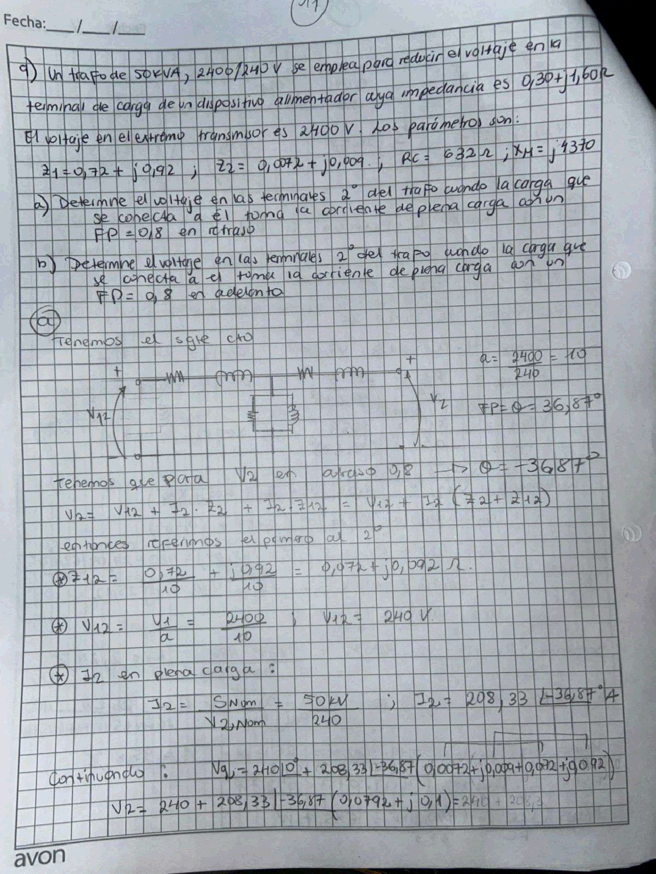 Fecha: ___/___/___
9) Un trafo de 50KVA, 2400/240 V se emplea para reducir el voltaje en la
terminal de carga de un dispositivo alimentador cuya impedancia es 0,30+j1,60Ω
El voltaje en el extremo transmisor es 2400 V. Los parámetros son:
Z1=0,72+j0,92 ; Z2=0,0072+j0,009 ; RC=632Ω ; XM=j4370
a) Determine el voltaje en las terminales 2° del trafo cuando la carga que
se conecta a él toma la corriente de plena carga con un
FP=0,8 en retraso
b) Determine el voltaje en las terminales 2° del trafo cuando la carga que
se conecta a el toma la corriente de plena carga con un
FP=0,8 en adelanto
a
Tenemos el sgte cto
a = 2400/240 = 10
FP=θ=36,87°
+
+
V12
V2
tenemos que para V2 en atraso 0,8 → θ=-36,87°
V2= V12 + I2.Z2 + I2.Z12 = V12 + I2 (Z2+Z12)
entonces referimos el primero al 2°
* Z12 = 0,72/10 + j0,92/10 = 0,072+j0,092 Ω.
* V12 = V1/a = 2400/10 ; V12= 240 V
* I2 en plena carga:
I2 = SNom/V2,Nom = 50kV/240 ; I2= 208,33 |-36,87° A
Continuando : V2=240|0° + 208,33|-36,87(0,0072+j0,009+0,072+j0,092)
V2= 240 + 208,33|-36,87 (0,0792+j0,1)=240 + 208,3
avon